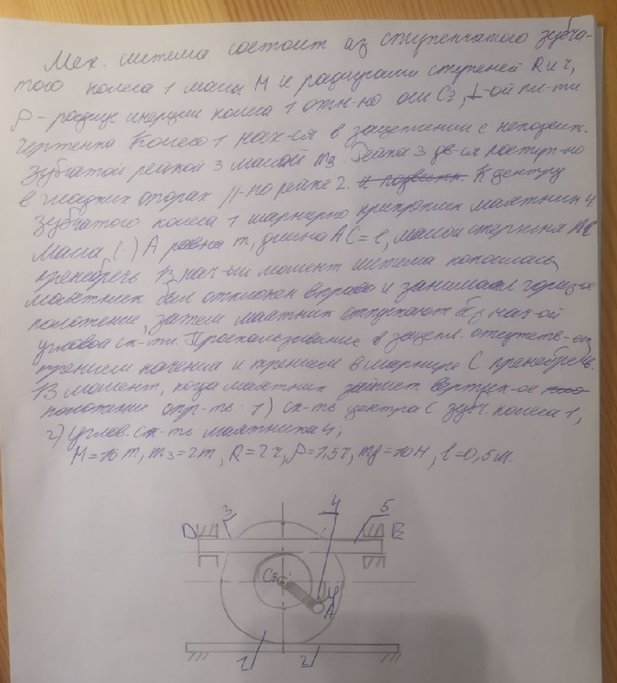 Мех. система состоит из ступенчатого зубча-
того колеса 1 массы M и радиусами ступеней R и r,
ρ - радиус инерции колеса 1 отн-но оси Cz, ⊥-ой пл-ти
чертежа. Колесо 1 нах-ся в зацеплении с неподвиж.
зубчатой рейкой 3 массой m₃. Рейка 3 дв-ся поступ-но
в гладких опорах //-но рейке 2. К центру
зубчатого колеса 1 шарнирно прикреплен маятник 4
Масса (·) A равна m, длина AC = l, массой стержня AC
пренебречь. В нач-ый момент система покоилась,
маятник был отклонен вправо и занимал гориз-ое
положение, затем маятник отпускают без нач-ой
углов ск-ти. Проскальзывание в зацепл. отсутств-ет,
трением качения и трением в шарнире C пренебречь.
В момент, когда маятник займет вертик-ое
положение опр-ть: 1) ск-ть центра C зубч. колеса 1,
2) углов. ск-ть маятника 4;
M=10m, m₃=2m, R=2r, ρ=1,5r, mg=10H, l=0,5м.
3 4 5
D E
C
φ
A
1 2